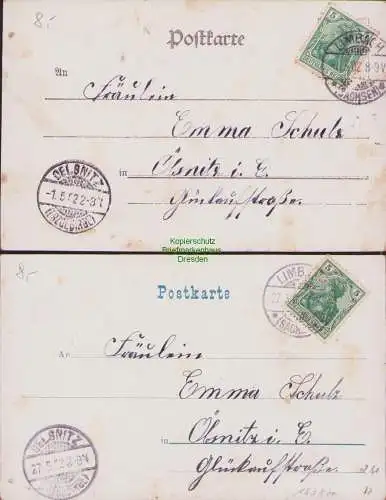 8.-
Postkarte
5
LIMBACH
8-9V
*(SACHSEN)*
An
Fräulein
Emma Schulz
in Ölsnitz i. E.
Glückaufstraße.
OELSNITZ
-1.5.02 2-3N
(ERZGEBIRGE)
Kopierschutz
Briefmarkenhaus
Dresden
8,-
Postkarte
LIMBACH
5
27.
*(SACHSEN)*
An
Fräulein
Emma Schulz
in Ölsnitz i. E.
Glückaufstraße.
OELSNITZ
27.5.02